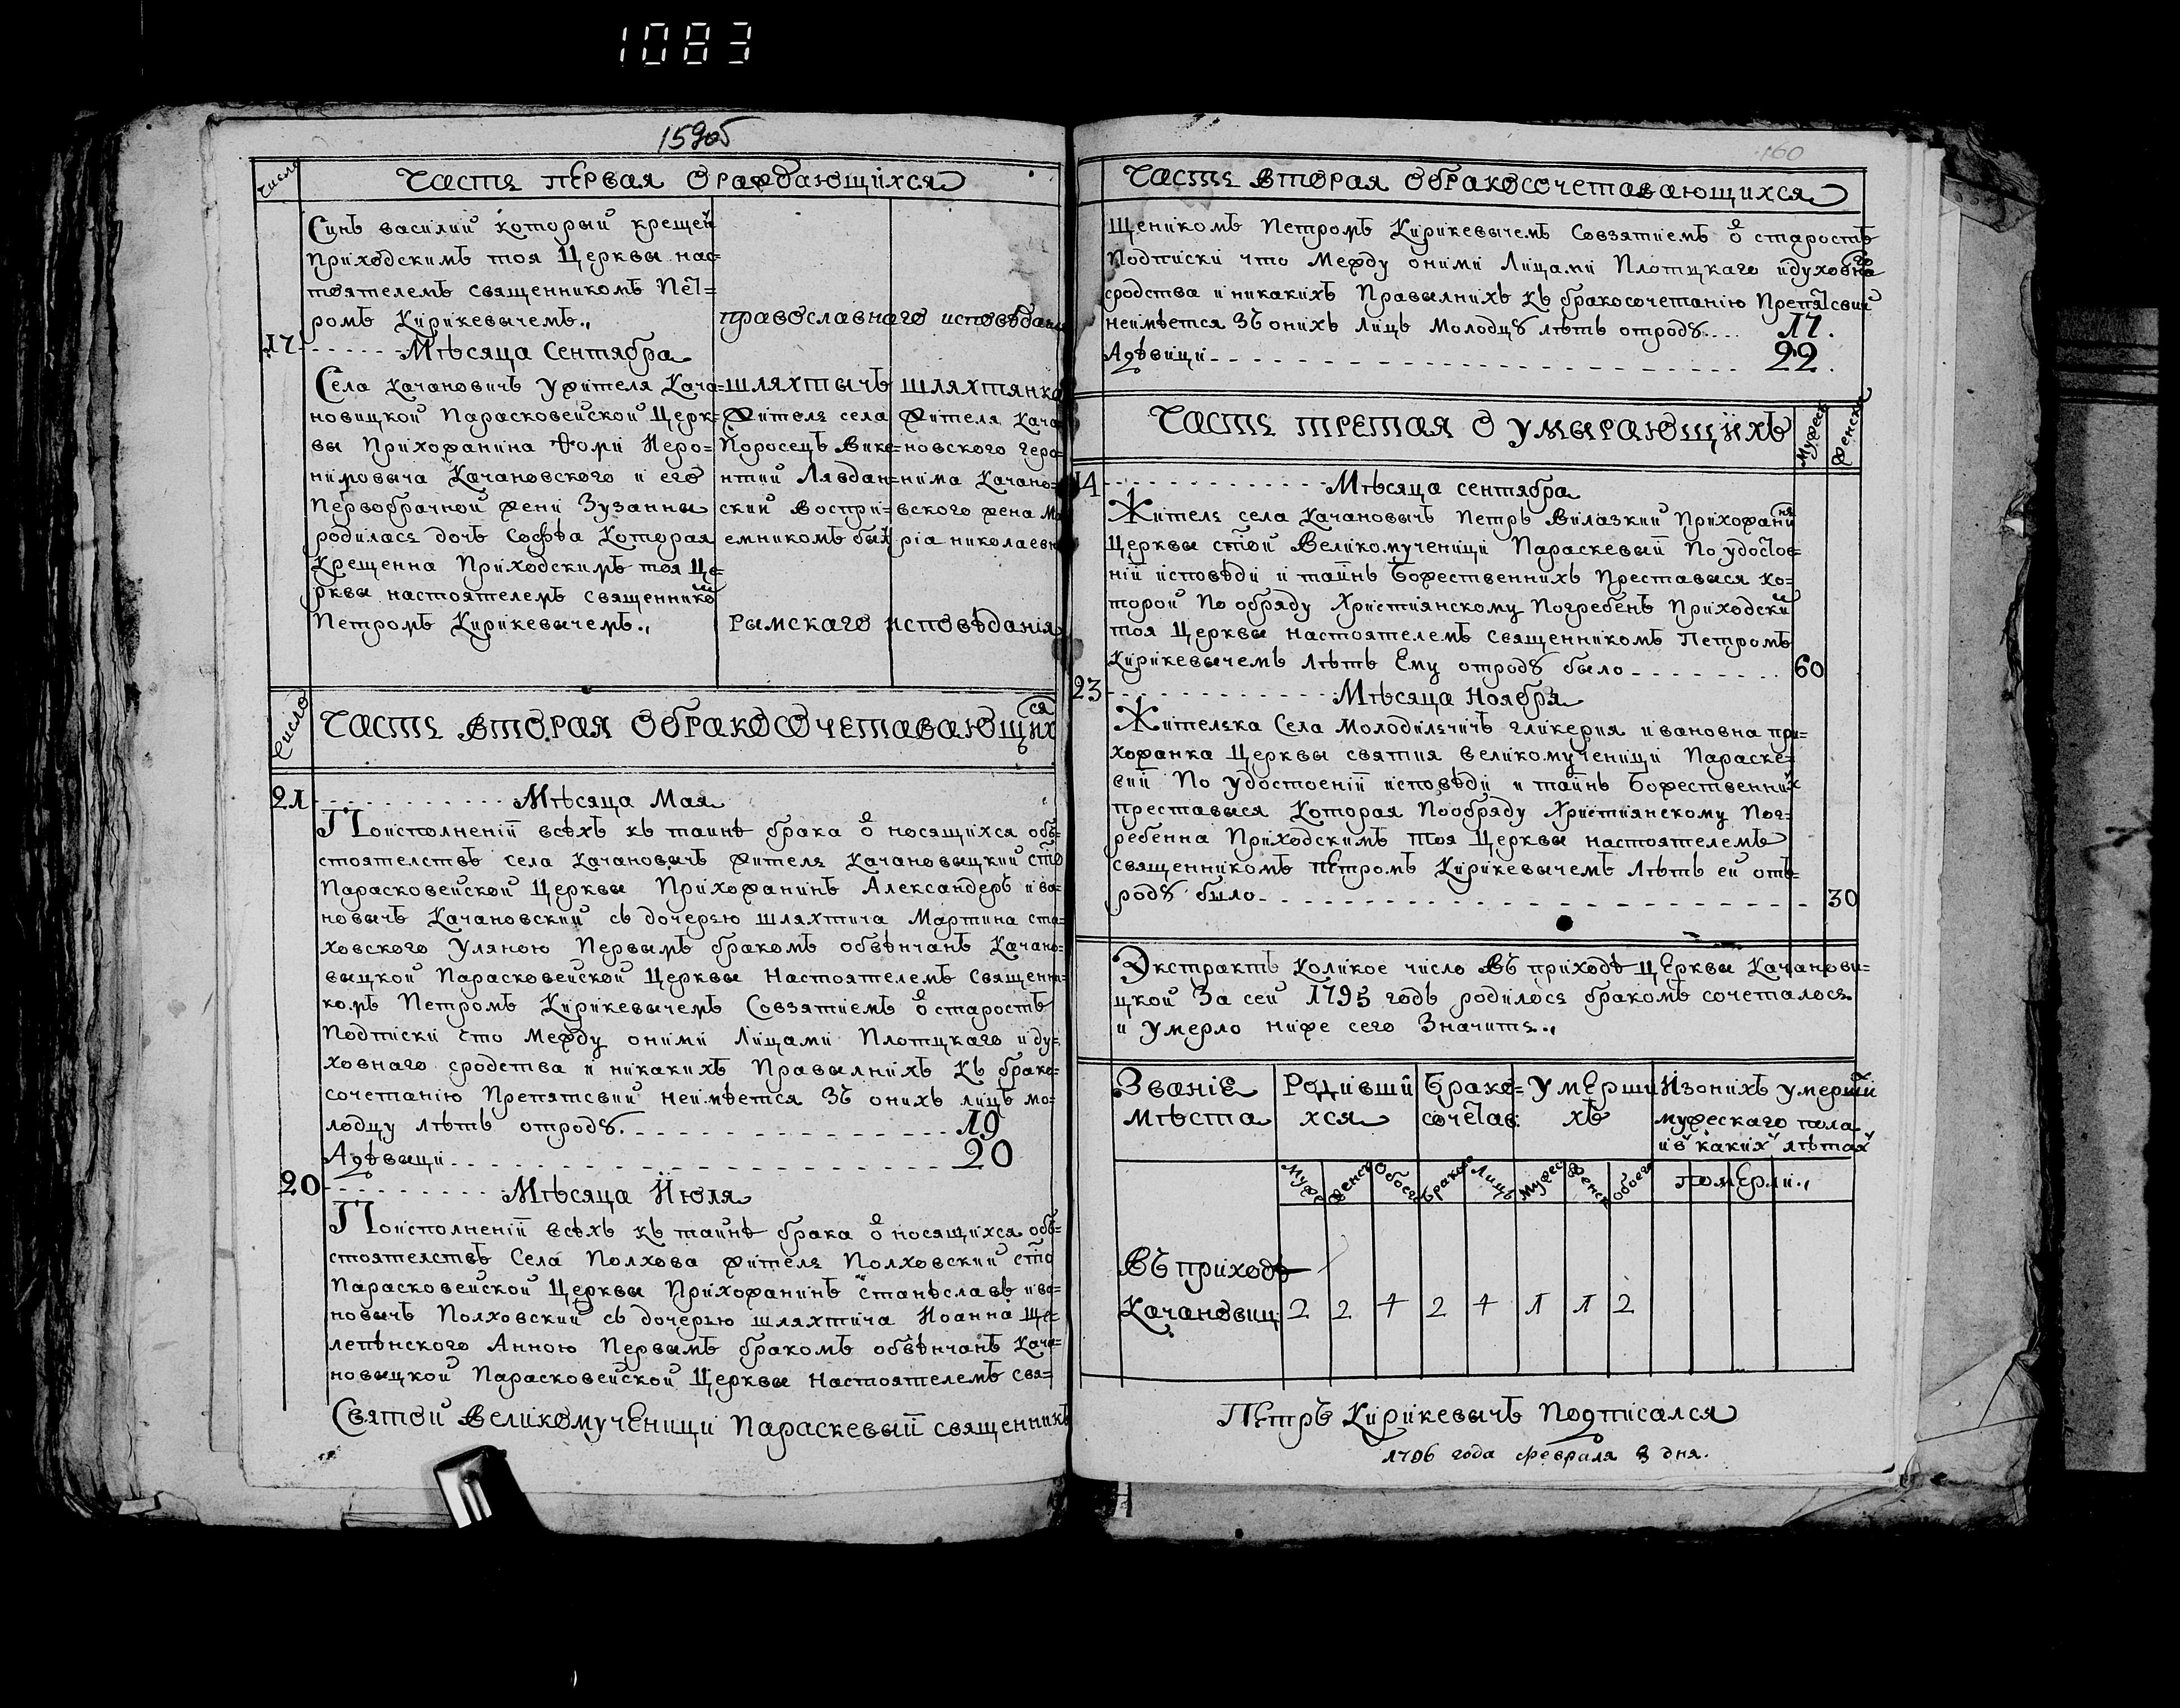 1083
159об
Число
Часть первая о раждающихся
Синъ василий который крещен
приходскимъ тоя Церквы нас=
тоятелемъ священникомъ Пет=
ромъ Кирикевычемъ.,
православнаго исповѣдан
17 Мѣсяца Сентября
Села Качановичъ Ужителя Кача=
новицкой Парасковейской Церк=
вы Прихожанина Фоми Иеро=
нимовыча Качановского и его
Первобрачной жени Зузанны
родилась дочь Софѣа Которая
Крещенна Приходскимъ тоя Це=
рквы настоятелемъ священнико
Петромъ Кирикевычемъ.,
шляхтычъ
Житель села
Поросецъ Вике=
нтий Лявдан=
ский воспри=
емникомъ был
шляхтянка
Жителя Кача
новского геро=
нима Качано=
вского жена Ма
рiа николаевн
Рымскаго исповѣданія
Число
Часть вторая обракосочетавающихся
21 Мѣсяца Мая
Поисполненіи всѣхъ къ таинѣ брака о носящихся объ=
стоятелствъ села Качановычъ житель Качановыцкий сто
Парасковейской Церквы Прихожанинъ Александеръ ива=
новычъ Качановский съ дочерью шляхтича Мартина ста=
ховского Уляною Первымъ бракомъ обвѣнчанъ Качано=
выцкой Парасковейской Церквы Настоятелемъ Священни=
комъ Петромъ Кирикевычемъ Совзятиемъ о старостъ
Подписки что Между оними Лицами Плотцкаго иду=
ховнаго сродства и никакихъ Правылнихъ Къ брако=
сочетанію Препятсвий неимѣется Зъ онихъ лицъ мо=
лодцу лѣтъ отродȣ. 19
Адѣвыци 20
20 Мѣсяца Июля
Поисполненіи всѣхъ къ таинѣ брака о носящихся объ=
стоятелствъ Села Полхова житель Полховский сто
Парасковейской Церквы Прихожанинъ станѣславъ ива=
новычъ Полховский съ дочерью шляхтича Иоанна Ще=
лепѣнского Анною Первымъ бракомъ обвѣнчанъ Кача=
новыцкой Парасковейской Церквы Настоятелемъ свя=
Святой великомученици Параскевыи священникъ
160
Часть вторая обракосочетавающихся
щеникомъ Петромъ Кирикевычемъ Совзятиемъ о старостъ
Подписки что Между оними Лицами Плотцкаго идуховнаго
сродства и никакихъ Правылнихъ къ бракосочетанію Препятсвий
неимѣется Зъ онихъ лицъ Молодцȣ лѣтъ отродȣ 17.
Адѣвици 22.
Часть третая о умыраюшихъ
Мужеск
Женска
14 Мѣсяца сентября
Житель села Качановычъ Петръ Вилазкий Прихожанин
Церквы стой Великомученици Параскевыи По удостое=
ній исповѣди и таинъ Божественнихъ Преставыся ко=
торой По обряду Християнскому Погребенъ Приходски
тоя Церквы настоятелемъ священникомъ Петромъ
Кирикевычемъ лѣтъ Ему отродȣ было 60
23 Мѣсяца Ноября
Жителька Села молодилчичъ гликерия ивановна при=
хожанка Церквы святия великомученици Параске=
вии По удостоеніи исповѣди и таинъ Божественних
преставыся Которая Пообряду Християнскому Пог=
ребенна Приходскимъ Тоя Церквы настоятелемъ
священникомъ петромъ Кирикевычемъ Лѣтъ ей отъ=
родȣ было 30
Экстрактъ Коликое число Въ приходѣ Церквы Качанови=
цкой За сей 1795 годъ родилось бракомъ сочеталось
и умерло ниже сего Значить.,
Званіе мѣста
Родивший хся
Брако= сочетав:
Умерши хъ
Изонихъ умерший мужескаго пола ивъ каких лѣтах померли.,
Муже Женск Обоего Браков Лицъ Мужес Женск Обоего
Въ приходѣ
Качановиц: 2 2 4 2 4 1 1 2
Петръ Кирикевычъ Подписался
1796 года февраля 3 дня.